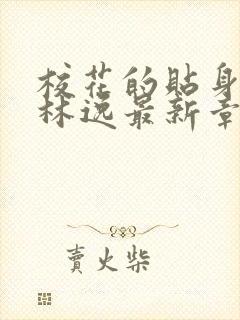 校花的貼身
林逸最新章
賣火柴